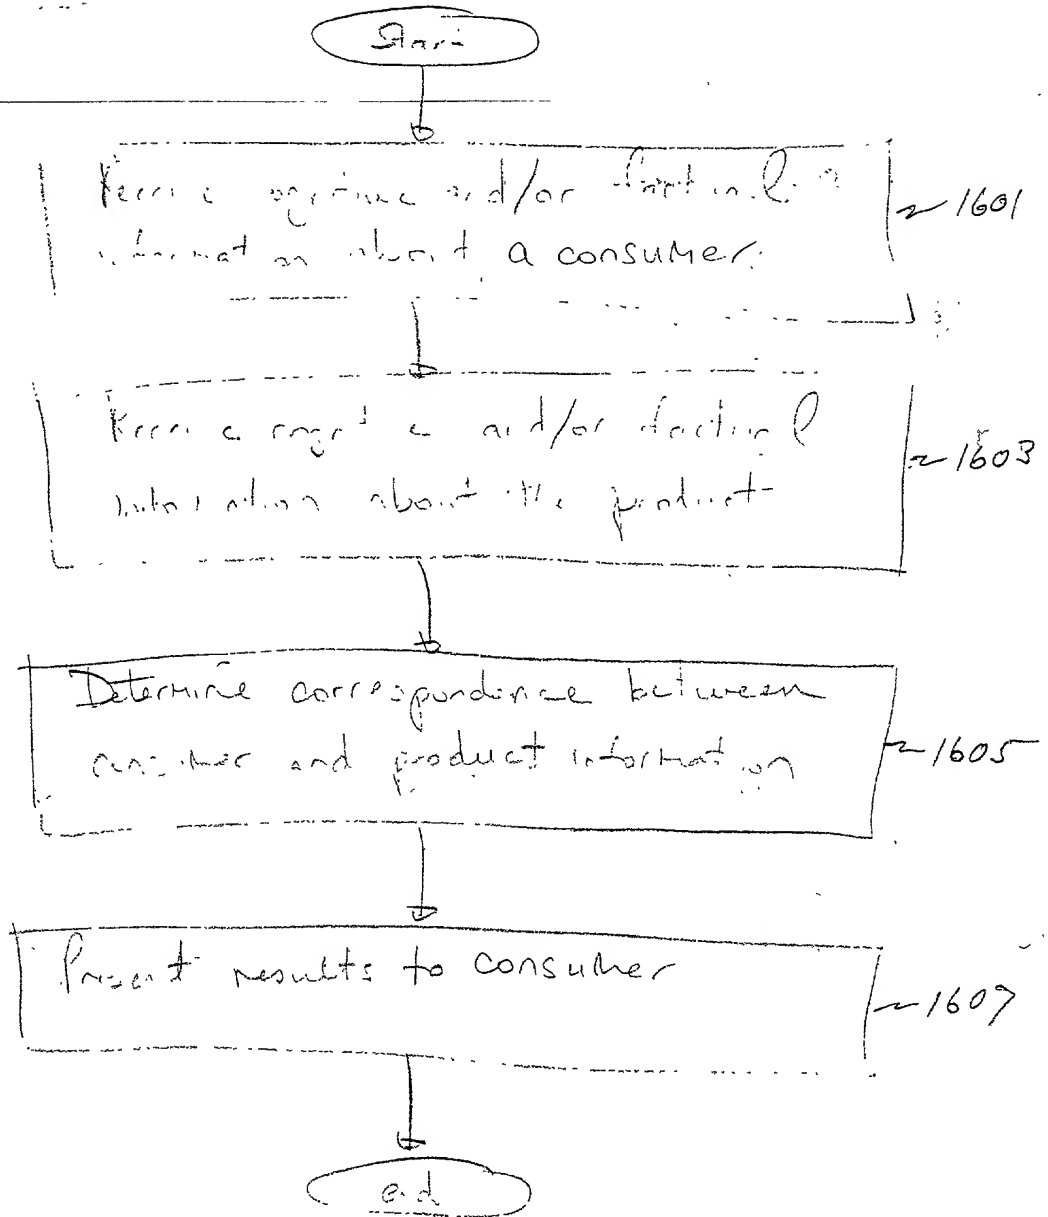 Start
Receive cognitive and/or factual
information about a consumer.
1601
Receive cognitive and/or factual
information about the product
1603
Determine correspondence between
consumer and product information
1605
Present results to consumer
1607
end